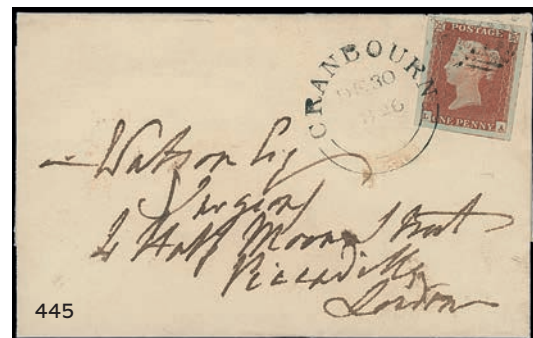 POSTAGE
ONE PENNY
A
CRANBOURN
DE 30
1846
Watson Esq
Surgeon
Half Moon Street
Piccadilly
London
445